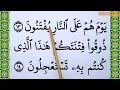 يَوْمَ هُمْ عَلَى النَّارِ يُفْتَنُونَ ١٣
ذُوقُوا۟ فِتْنَتَكُمْ هَٰذَا الَّذِى
كُنتُم بِهِۦ تَسْتَعْجِلُونَ ١٤